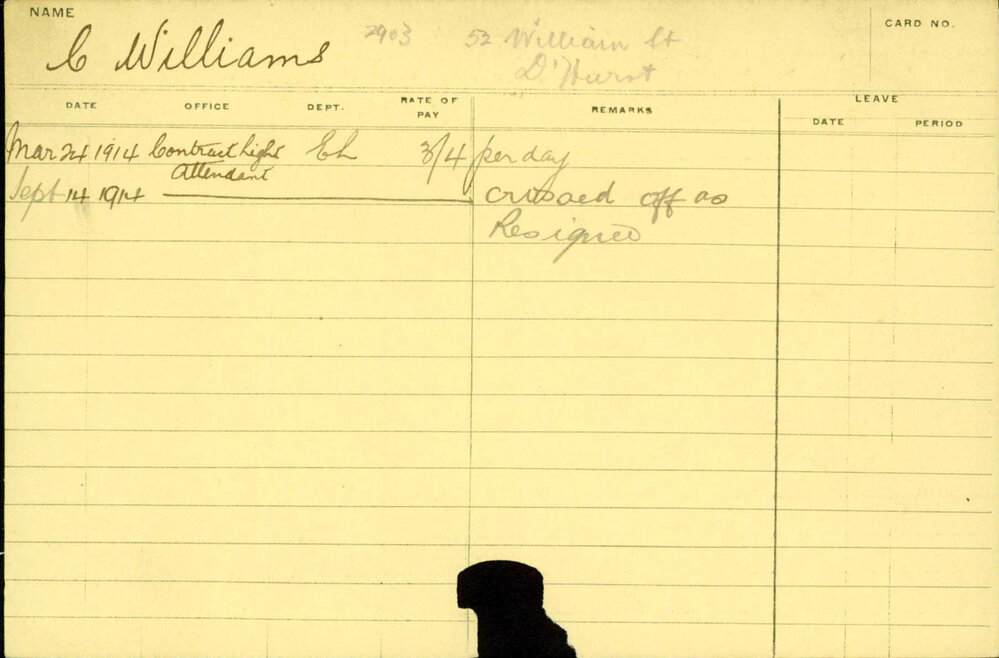 NAME
CARD NO.
C Williams 2903 52 William St
D'Hurst
DATE OFFICE DEPT. RATE OF PAY REMARKS LEAVE
DATE PERIOD
Mar 24 1914 Contract Light EL 3/4 per day
Attendant
Sept 14 1914 crossed off as
Resigned